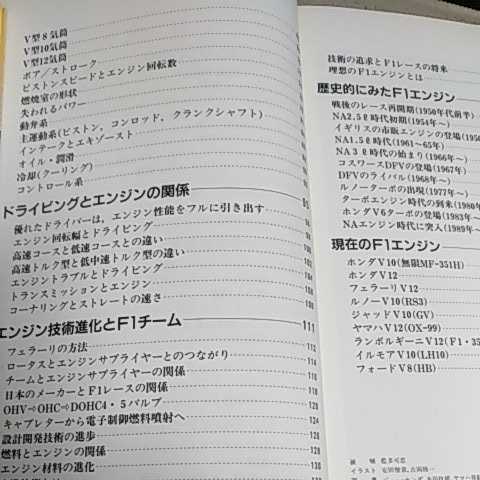 V型8気筒
V型10気筒
V型12気筒
ボア／ストローク
ピストンスピードとエンジン回転数
燃焼室の形状
失われるパワー
動弁系
主運動系(ピストン, コンロッド, クランクシャフト)
インテークとエキゾースト
オイル・潤滑
冷却(クーリング)
コントロール系
ドライビングとエンジンの関係
優れたドライバーは, エンジン性能をフルに引き出す
エンジン回転幅とドライビング
高速コースと低速コースとの違い
高速トルク型と低中速トルク型の違い
エンジントラブルとドライビング
トランスミッションとエンジン
コーナリングとストレートの速さ
エンジン技術進化とF1チーム 111
フェラーリの方法 112
ロータスとエンジンサプライヤーとのつながり
チームとエンジンサプライヤーの関係
日本のメーカーとF1レースの関係
OHV⇨OHC⇨DOHC4・5バルブ
キャブレターから電子制御燃料噴射へ
設計開発技術の進歩
燃料とエンジンの関係
エンジン材料の進化
技術の追求とF1レースの将来
理想のF1エンジンとは
歴史的にみたF1エンジン
戦後のレース再開期(1950年代前半)
NA2.5ℓ時代初期(1954年〜)
イギリスの市販エンジンの登場(1950
NA1.5ℓ時代(1961〜65年)
NA3ℓ時代の始まり(1966年〜)
コスワースDFVの登場(1967年)
DFVのライバル(1968年〜)
ルノーターボの出現(1977年〜)
ターボエンジン時代の到来(1980年
ホンダV6ターボの登場(1983年〜
NAエンジン時代に突入(1989年〜
現在のF1エンジン
ホンダV10(無限MF-351H)
ホンダV12
フェラーリV12
ルノーV10(RS3)
ジャッドV10(GV)
ヤマハV12(OX-99)
ランボルギーニV12(F1・35
イルモアV10(LH10)
フォードV8(HB)
イラスト